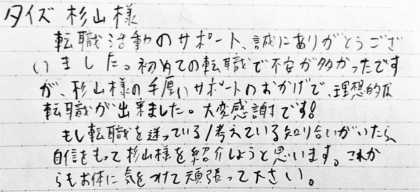 タイズ 杉山様
転職活動のサポート、誠にありがとうござ
いました。初めての転職で不安が多かったです
が、杉山様の手厚いサポートのおかげで、理想的な
転職が出来ました。大変感謝です!
もし転職を迷っている/考えている知り合いがいたら
自信をもって杉山様を紹介しようと思います。これか
らもお体に気をつけて頑張って下さい。